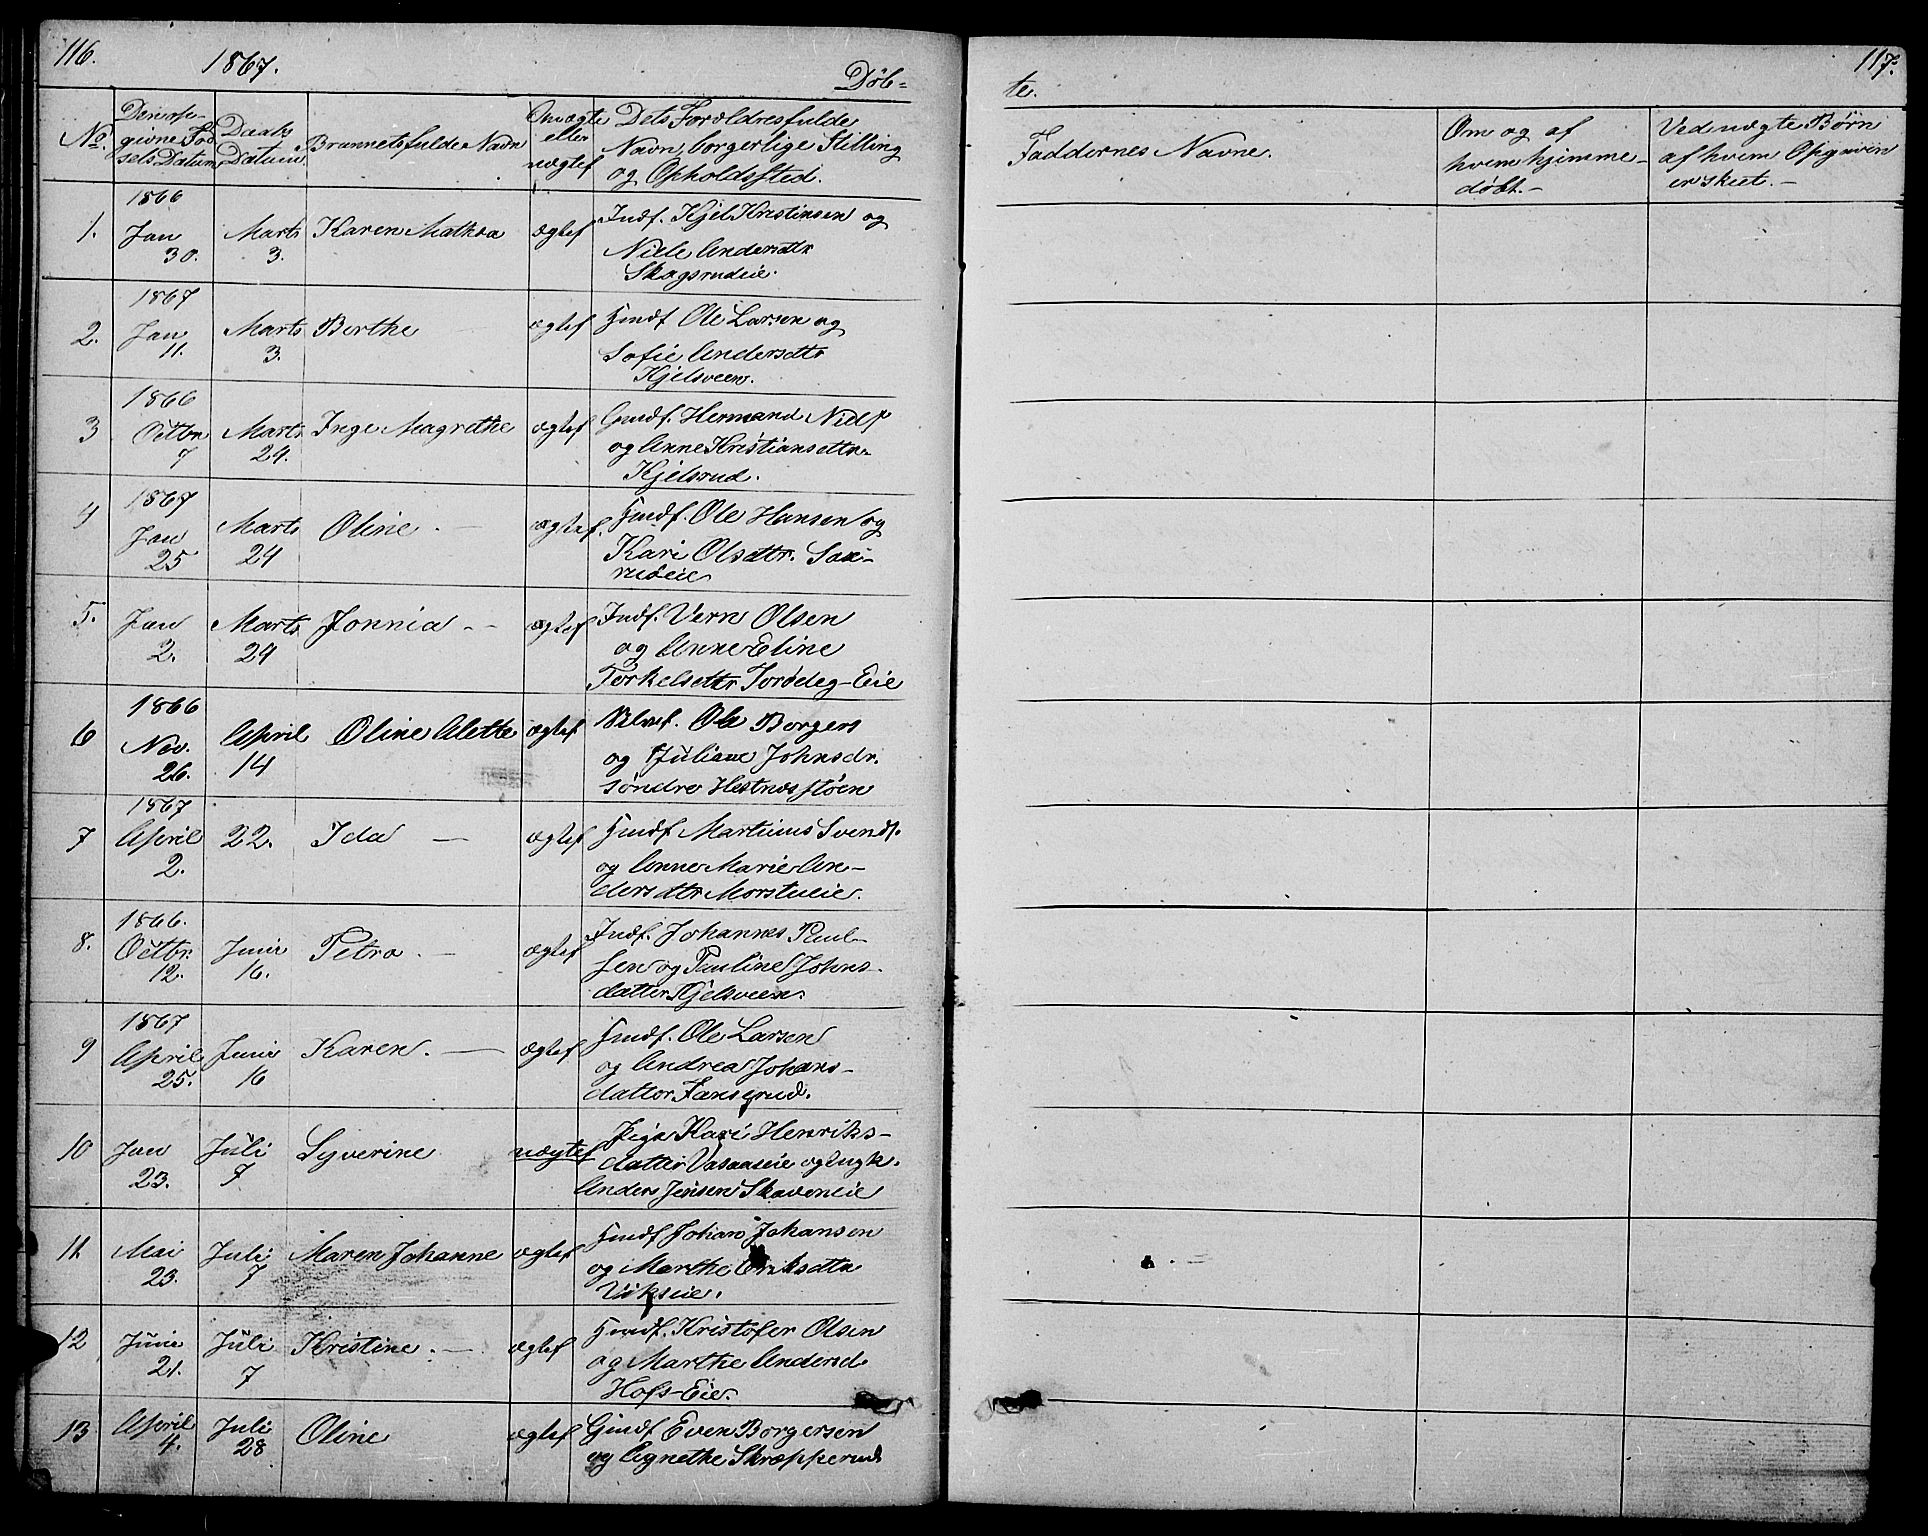 116.
1867.
Døb-
No.
Den opgivne Fødsels Datum
Daabs Datum
Barnets fulde Navn
Om ægte eller uægte
Dets Forældres fulde
Navn, borgerlige Stilling
og Opholdssted.
1.
1866
Jan
30.
Marts
3.
Karen Mathea
ægtef
Indf. Kjel Kristinsen og
Andersdtr
Skogsrudeie.
2.
1867
Jan
11.
Marts
3.
Berthe
ægtef
Ole Larsen og
Sofie Andersdtr
Kjelsveen.
3
1866
Octbr
7
Marts
24.
Inge Magrethe
ægtef
Gmdf. Hermand Niels
og Anne Kristiansdtr
Kjelsrud.
4
1867
Jan
25
Marts
24
Oline
ægtef.
Ole Hansen og
Kari Olsdtr.
5.
Jan
2.
Marts
24
Jonnia
ægtef
Indf. Vern Olsen
og Anne Eline
Torkelsdtr Eie
6
1866
Nov.
26.
April
14
Oline Alette
ægtef
Ole Borgers
og Juliane Johnsdr.
søndre Hestnæs støen
7
1867
April
2.
22.
Ida
ægtef
Martinus Svends.
og Anne Marie An-
dersdtr Morstueie.
8.
1866.
Octbr.
12.
Juni
16.
Petra
ægtef
Indf. Johannes Paul-
sen og Pauline Johns-
datter Kjelsveen.
9
1867
April
25.
Juni
16
Karen.
ægtef
Ole Larsen
og Andrea Johans-
datter
10
Jan
23.
Juli
7
Syverine
uægtef
Pige Kari Henriks-
datter og ungk.
Anders Jensen
11.
Mai
23.
Juli
7
Maren Johanne
ægtef
Johan Johansen
og Marthe Eriksdtr
Vikseie.
12
Juni
21.
Juli
7
Kristine.
ægtef
Kristofer Olsen
og Marthe Andersd
Hofs-Eie.
13
April
4.
Juli
28
Oline
ægtef
Gmdf Even Borgersen
og Agnethe Skrepperud
117.
te.
Faddernes Navne.
Om og af
hvem hjemme-
døbt.-
Ved uægte Børn
af hvem Opgaven
er skeet.-